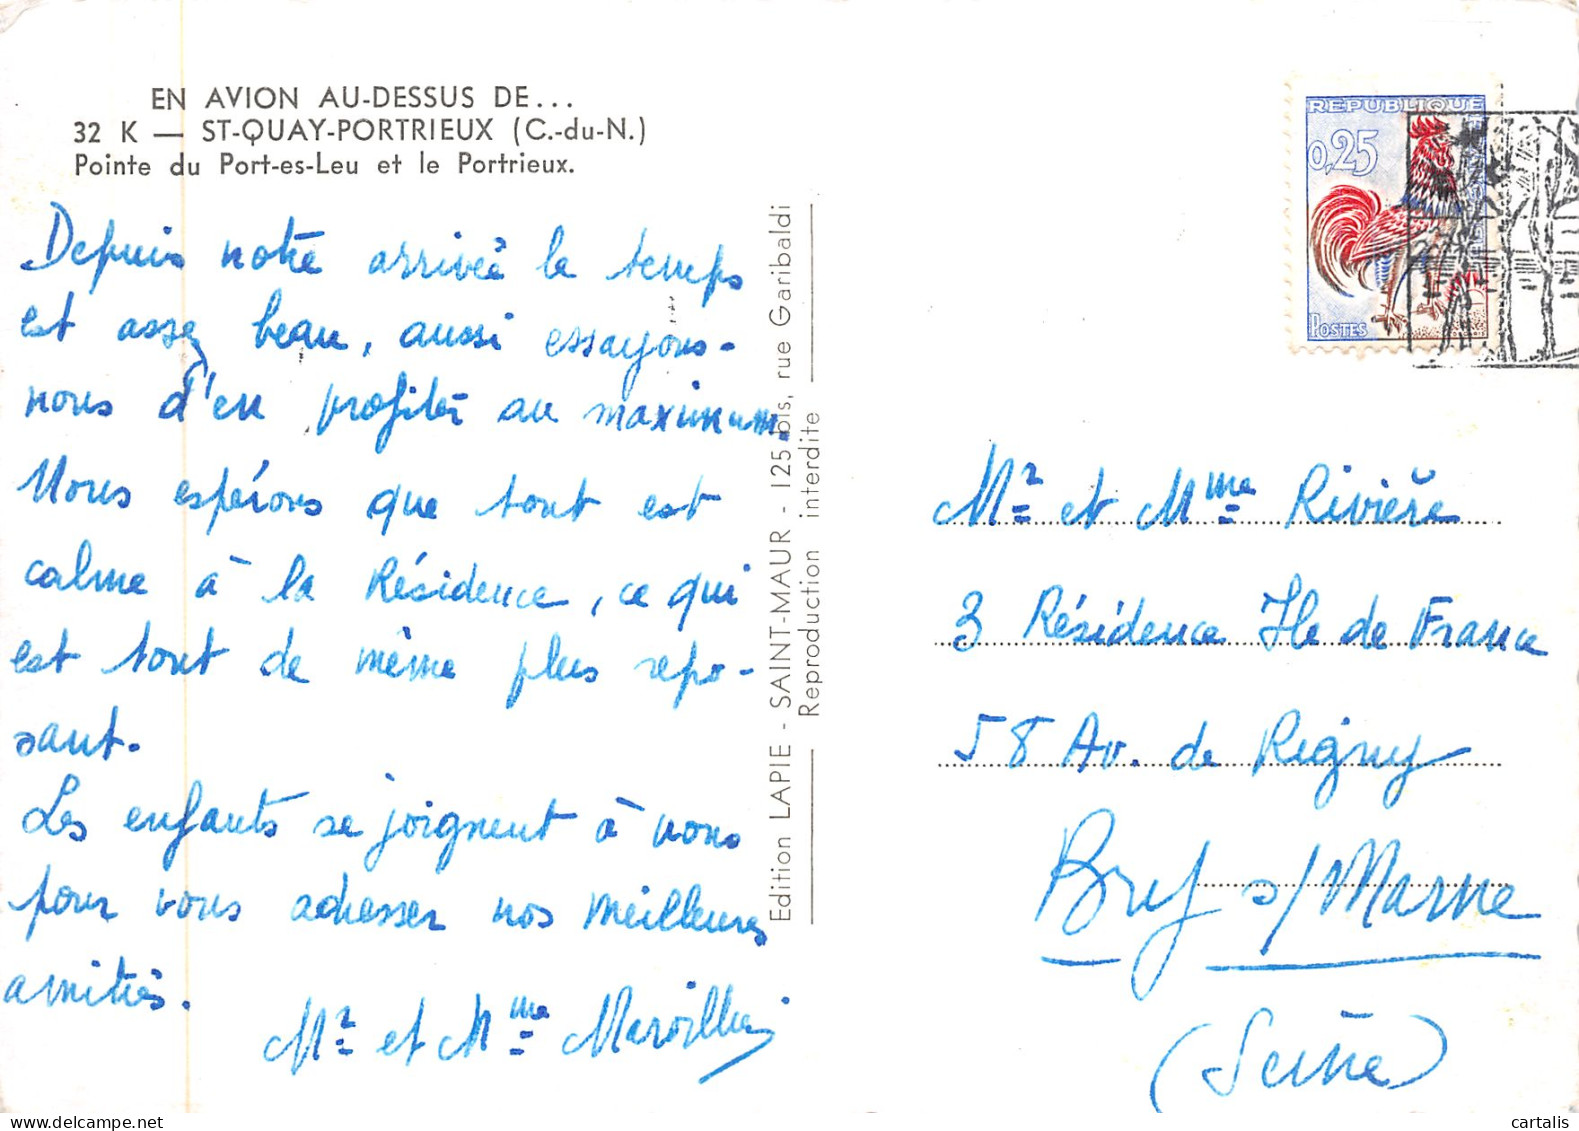 EN AVION AU-DESSUS DE...
32 K — ST-QUAY-PORTRIEUX (C.-du-N.)
Pointe du Port-es-Leu et le Portrieux.
Depuis notre arrivée le temps
est assez beau, aussi essayons-
nous d'en profiter au maximum.
Nous espérons que tout est
calme à la Résidence, ce qui
est tout de même plus repo-
sant.
Les enfants se joignent à nous
pour vous adresser nos meilleures
amitiés.
Mr et Mme
Edition LAPIE - SAINT-MAUR - 125 bis, rue Garibaldi
Reproduction interdite
REPUBLIQUE
0,25
POSTES
Mr et Mme Rivière
3 Résidence Ile de France
58 Av. de Rigny
Bry s/Marne
(Seine)
cartalis